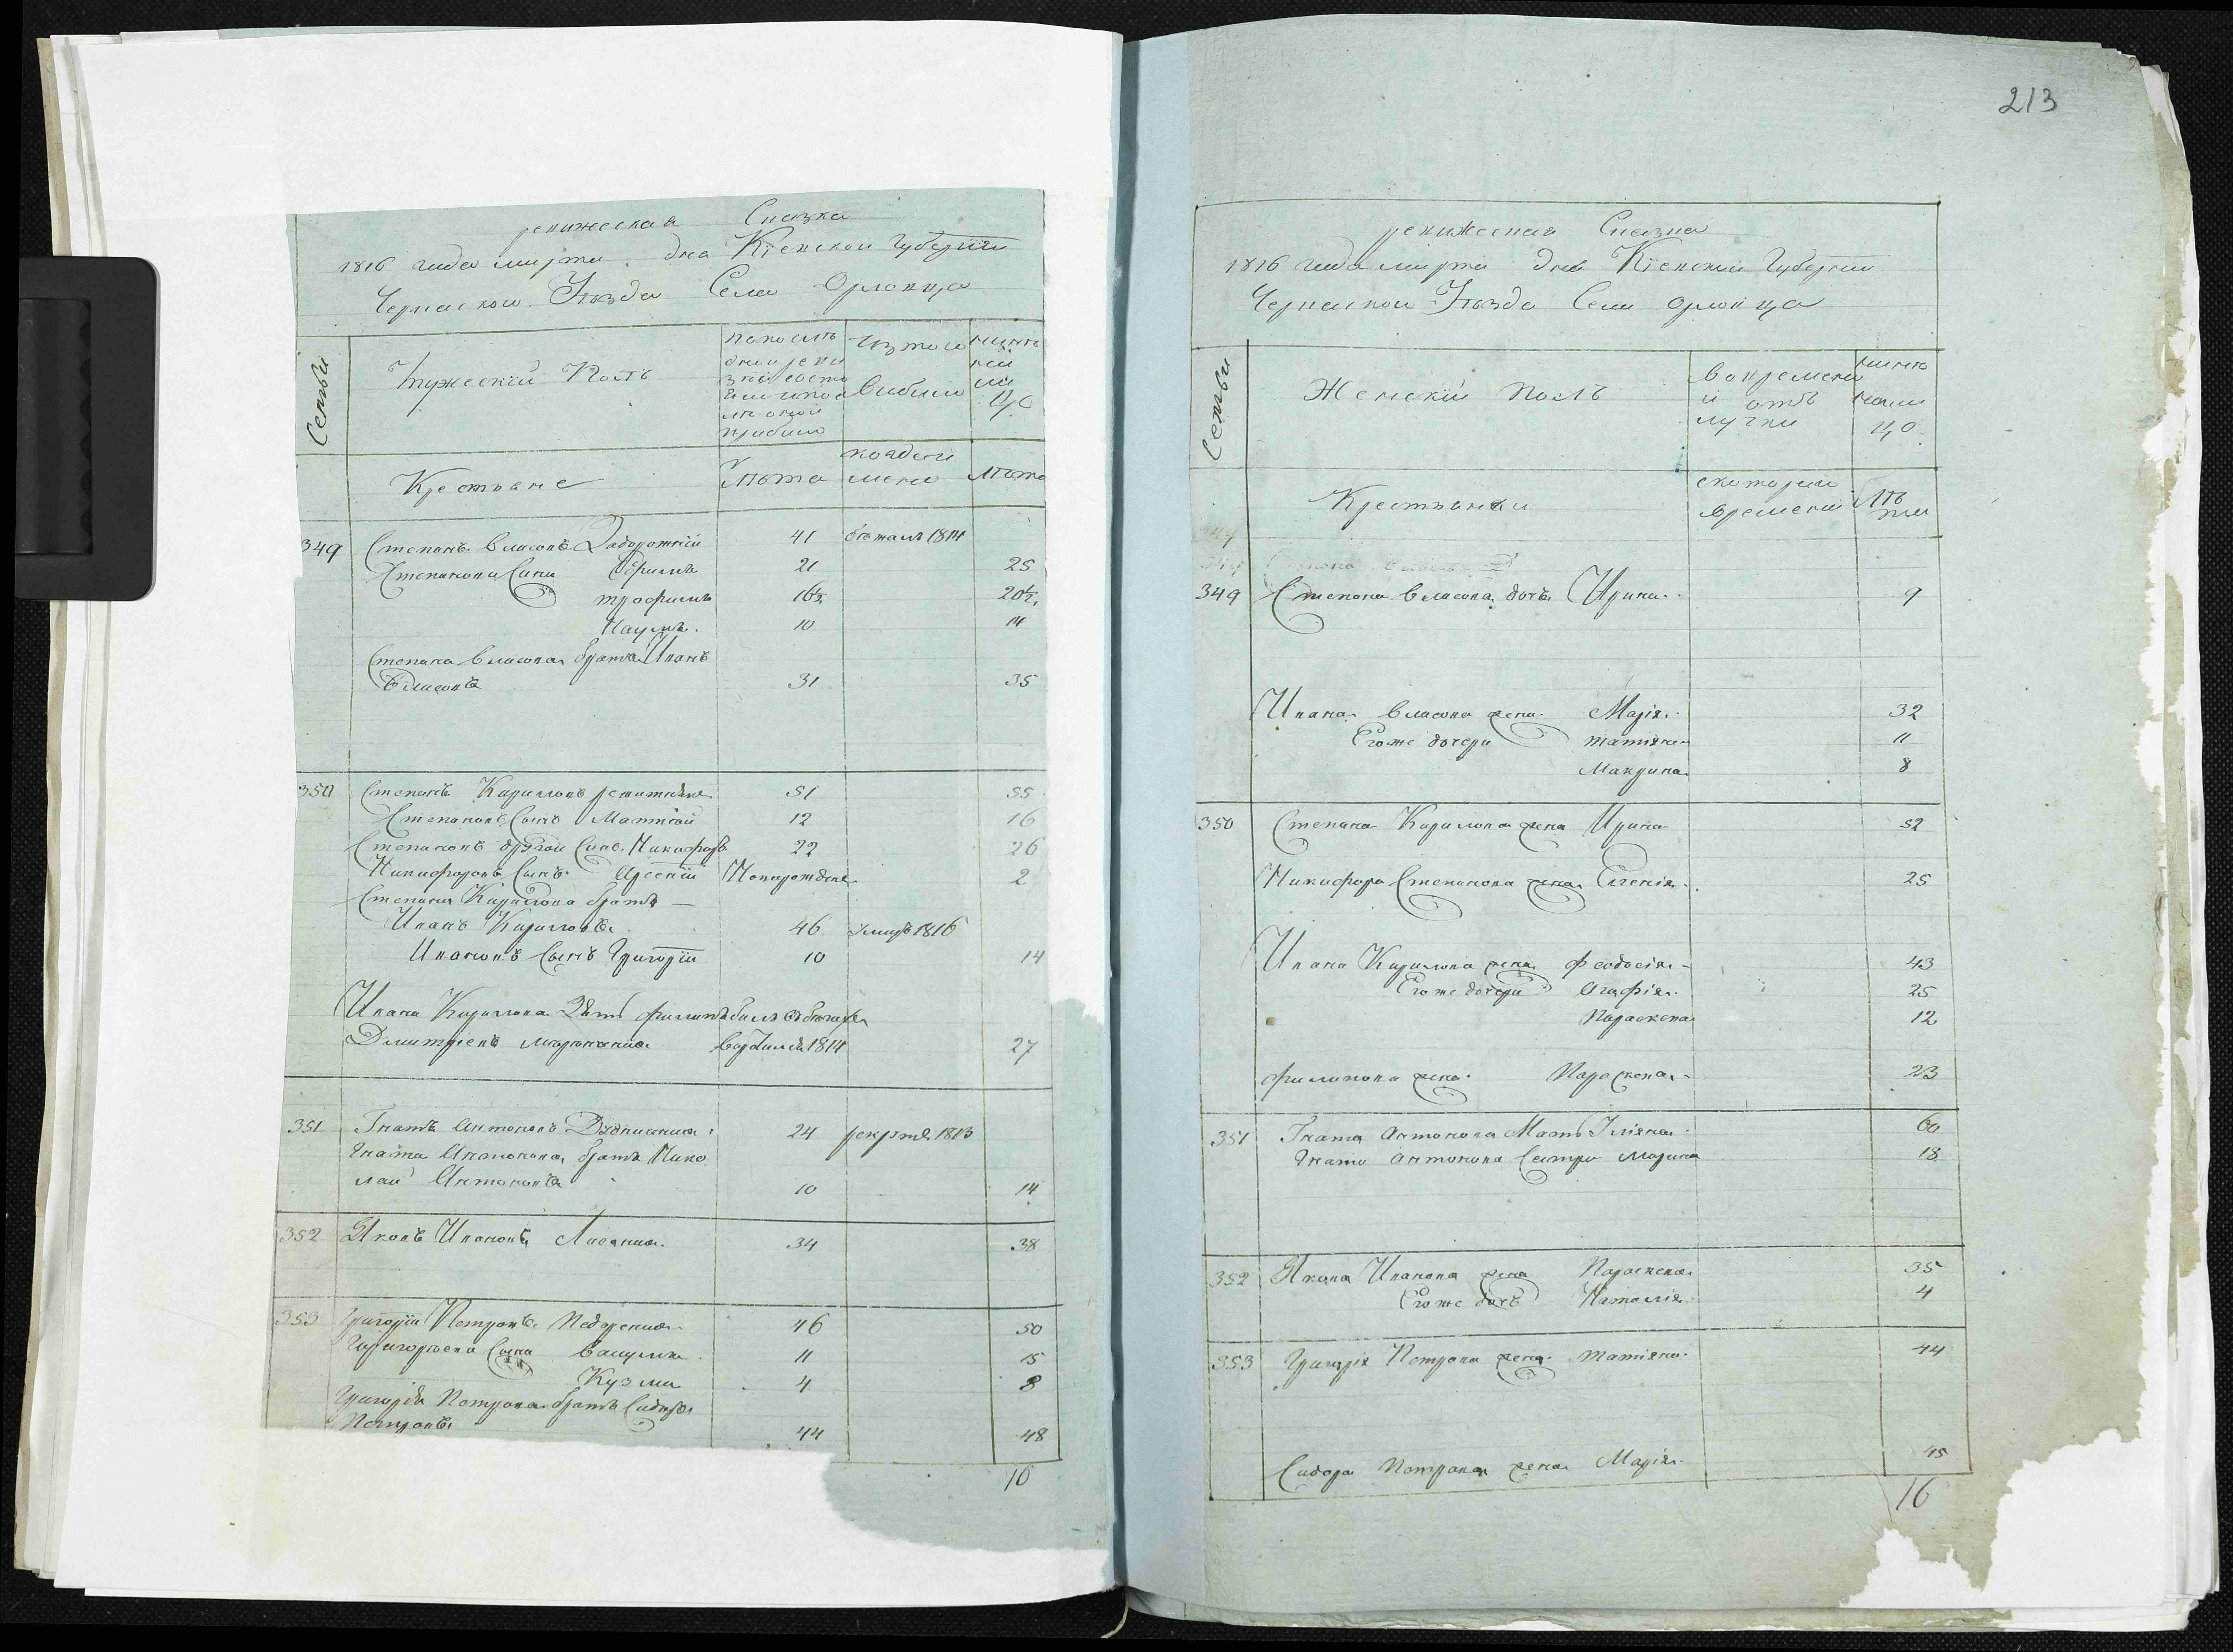 ревижеская Сказка
1816 года марта дна Кіевской Губерніи
Черкаской Уѣзда Села Орловца
Семьи
Мужескій Полъ
изтого
выбыло
нынѣ
на
ли
цо
прибыло
Крестьяне
лѣта
когда
имено
лѣта
349 Степанъ Власовъ Задорожній 41 бѣжалъ 1814
Степанови Сини Ефимъ 21 25
трофимъ 16½ 20½
Наумъ 10 14
Степана Власова братъ Иванъ
Власовъ 31 35
350 Степанъ Кириловъ 51 55
Степановъ Сынъ Матвѣй 12 16
Степановъ другой Синъ Никифоръ 22 26
Никифоровъ Сынъ Арсеній Новорожденъ 2
Степана Кирилова братъ
Иванъ Кириловъ 46 умиръ 1816
Ивановъ Сынъ Григорій 10 14
Ивана Кирилова Зять филипъ билъ въ бѣгахъ
Дмитріевъ 1814 27
351 Гнатъ Антоновъ 24 рекрутъ 1813
Гната Антонова братъ Нико
лай Антоновъ 10 14
352 Яковъ Ивановъ Лисенко 34 38
353 Григорій Петровъ Педоренко 46 50
Григорьеви Сыни Василь 11 15
Кузма 4 8
Григорія Петрова братъ Сидоръ
Петровъ 44 48
16
213
ревижеская Сказка
1816 года марта дна Кіевской Губерніи
Черкаской Уѣзда Села Орловца
Семьи
Женскій полъ
во времено
й отъ
лучки
нынѣ
нали
цо
Крестьянки
скоторого
времени
лѣ
та
349 Степана Власова дочь Ирина 9
Ивана Власова жена Марія 32
Егоже дочери татіяна 11
Макрина 8
350 Степана Кирилова жена Ирина 52
Никифора Степанова жена Евгенія 25
Ивана Кирилова жена феодосія 43
Егоже дочери Агафія 25
Параскева 12
филипова жена Параскева 23
351 Гната Антонова Мать Уліяна 60
Гната Антонова Сестра Марина 18
352 Якова Иванова жена Параскева 35
Егоже дочь Наталія 4
353 Григорія Петрова жена татіяна 44
Сидора Петрова жена Марія 45
16